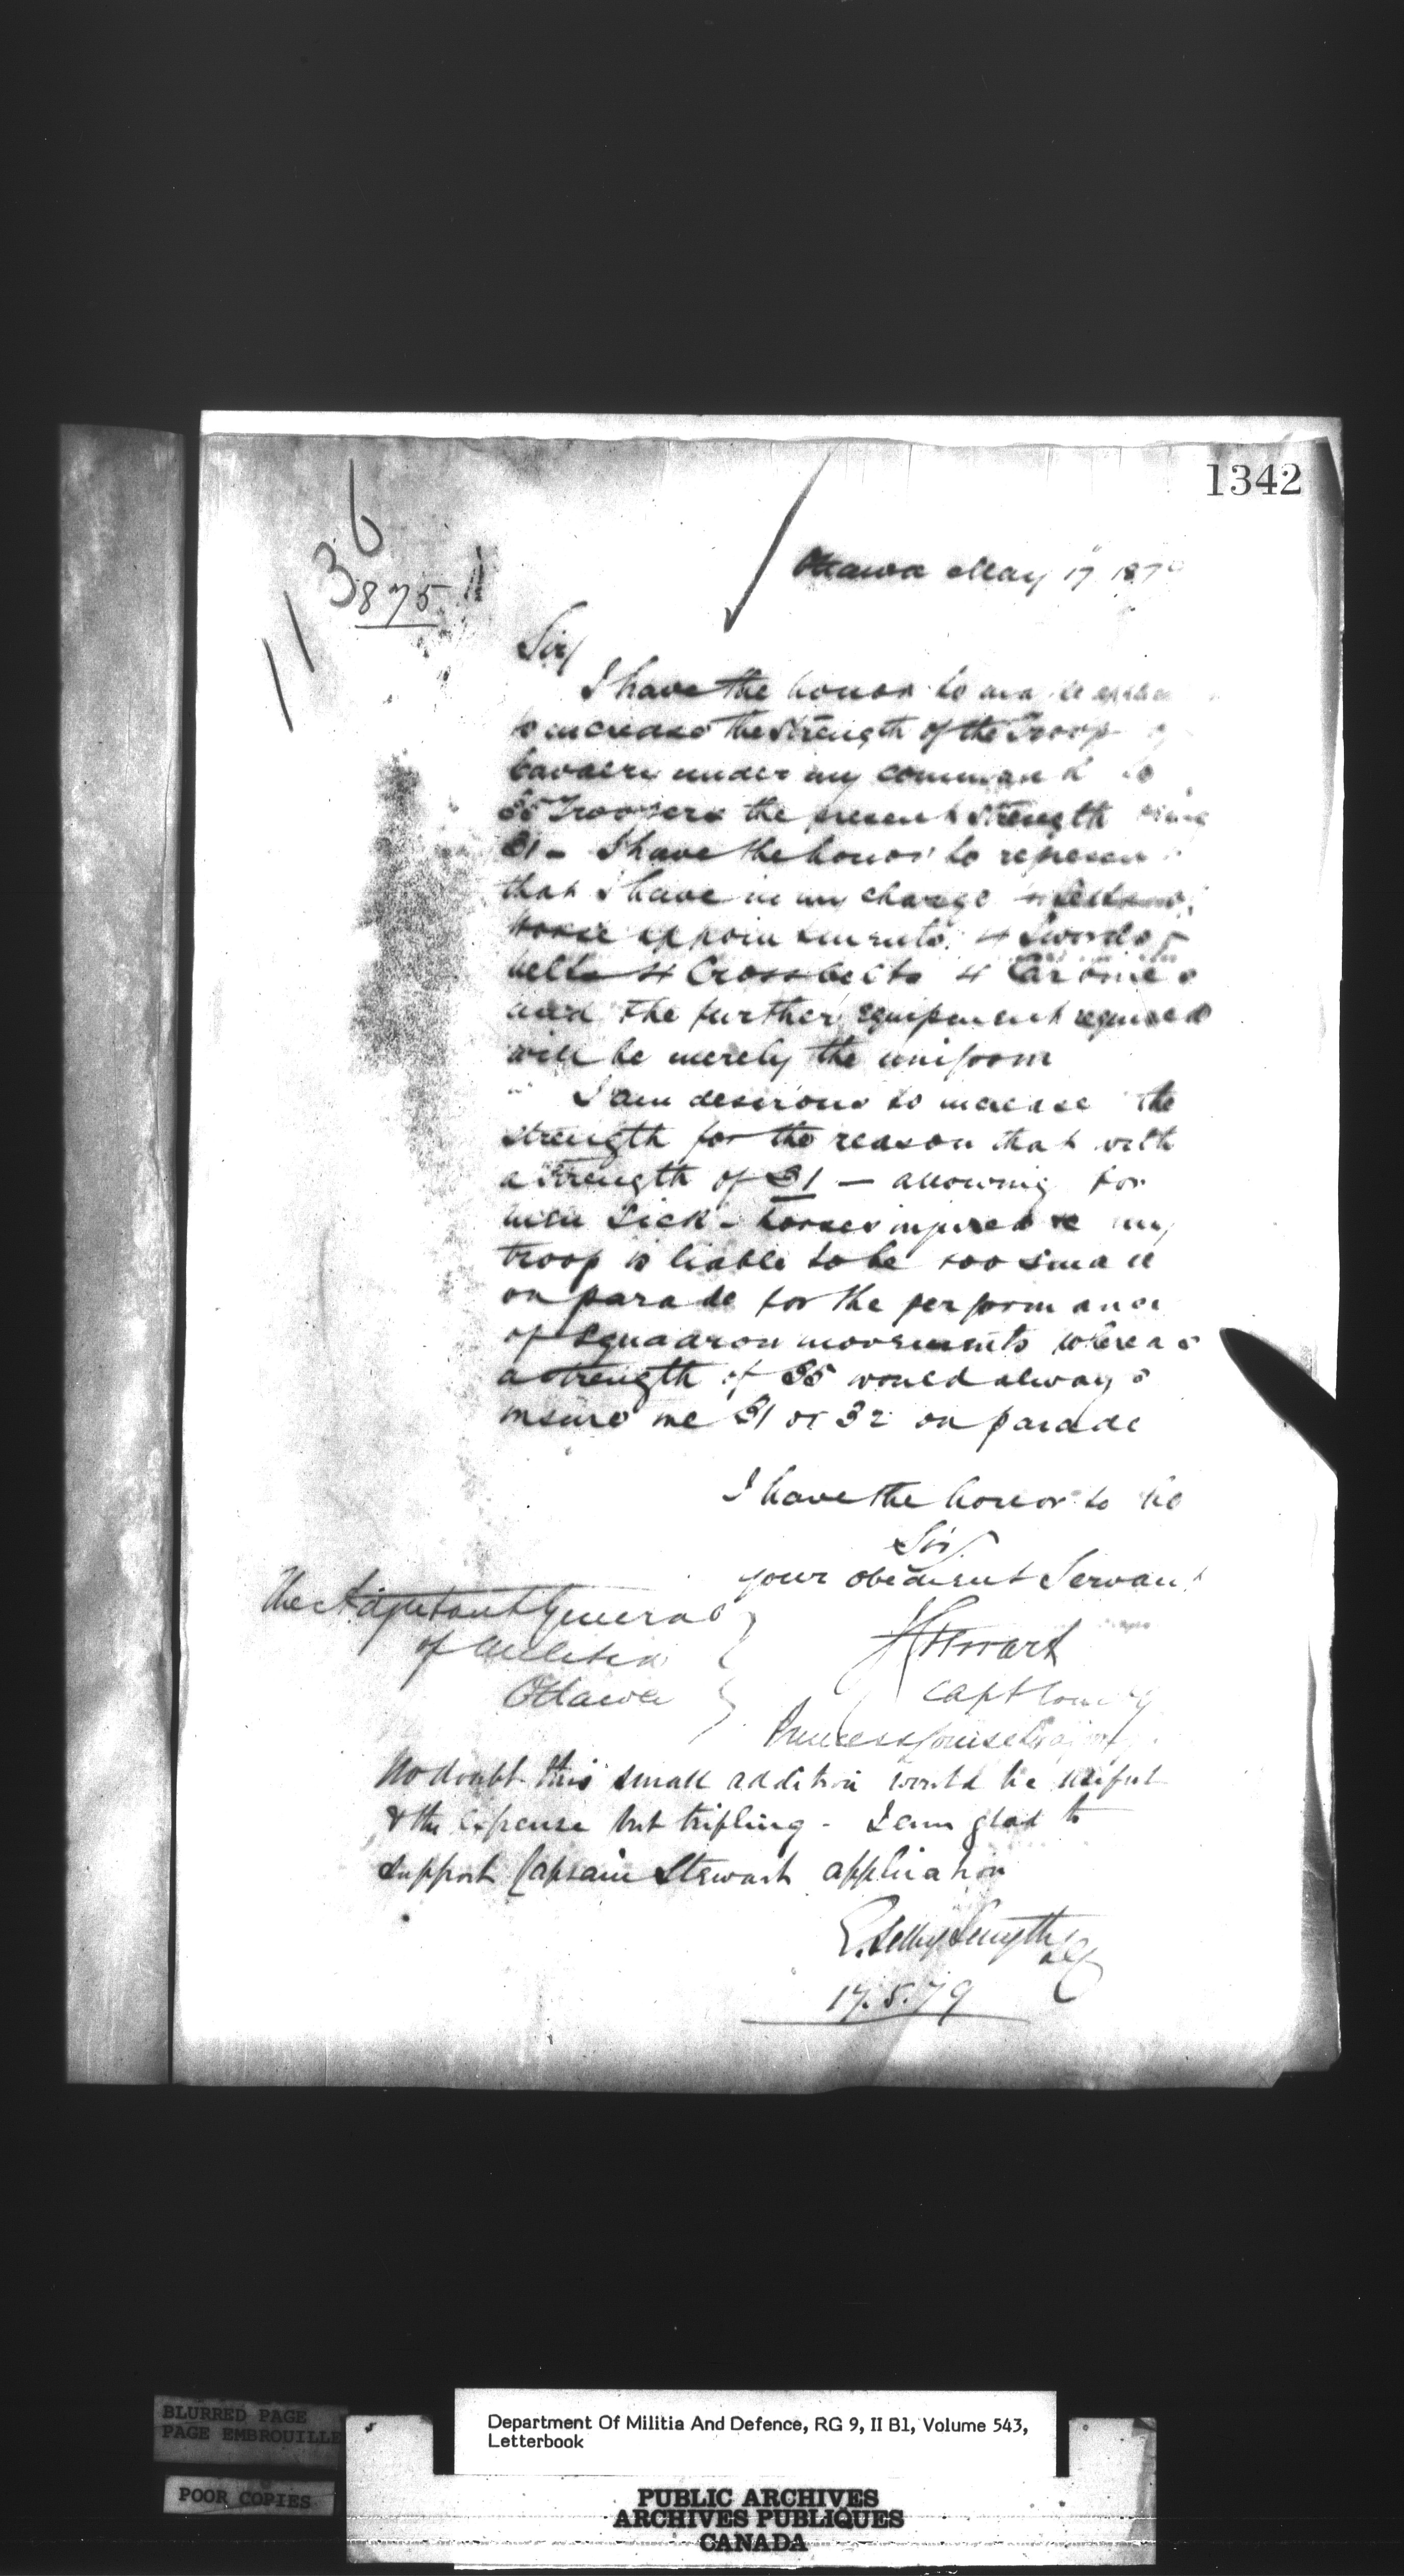 1342
1136
875
Ottawa May 17 187
Sir
I have the honor to
to increase the strength of the Troop
Cavalry under my command to
35 Troopers the present strength being
31 - I have the honor to represent
that I have in my charge 4
horse appointments 4 Swords &
belts 4 Crossbelts 4 Carbines
and the further equipment required
will be merely the uniform
I am desirous to increase the
strength for the reason that with
a strength of 31 - allowing for
men sick - horses injured &c my
troop is liable to be too small
on parade for the performance
of Squadron movements whereas
a strength of 35 would always
insure me 31 or 32 on parade
I have the honor to be
Sir
your obedient Servant
The Adjutant General
of Militia
Ottawa
J Stewart
Capt Comdg
Princess Louise Dragoon
No doubt this small addition would be useful
& the expense but trifling - I am glad to
support Captain Stewart application
E. Selby Smyth
17.5.79
BLURRED PAGE
PAGE EMBROUILLE
POOR COPIES
Department Of Militia And Defence, RG 9, II B1, Volume 543,
Letterbook
PUBLIC ARCHIVES
ARCHIVES PUBLIQUES
CANADA